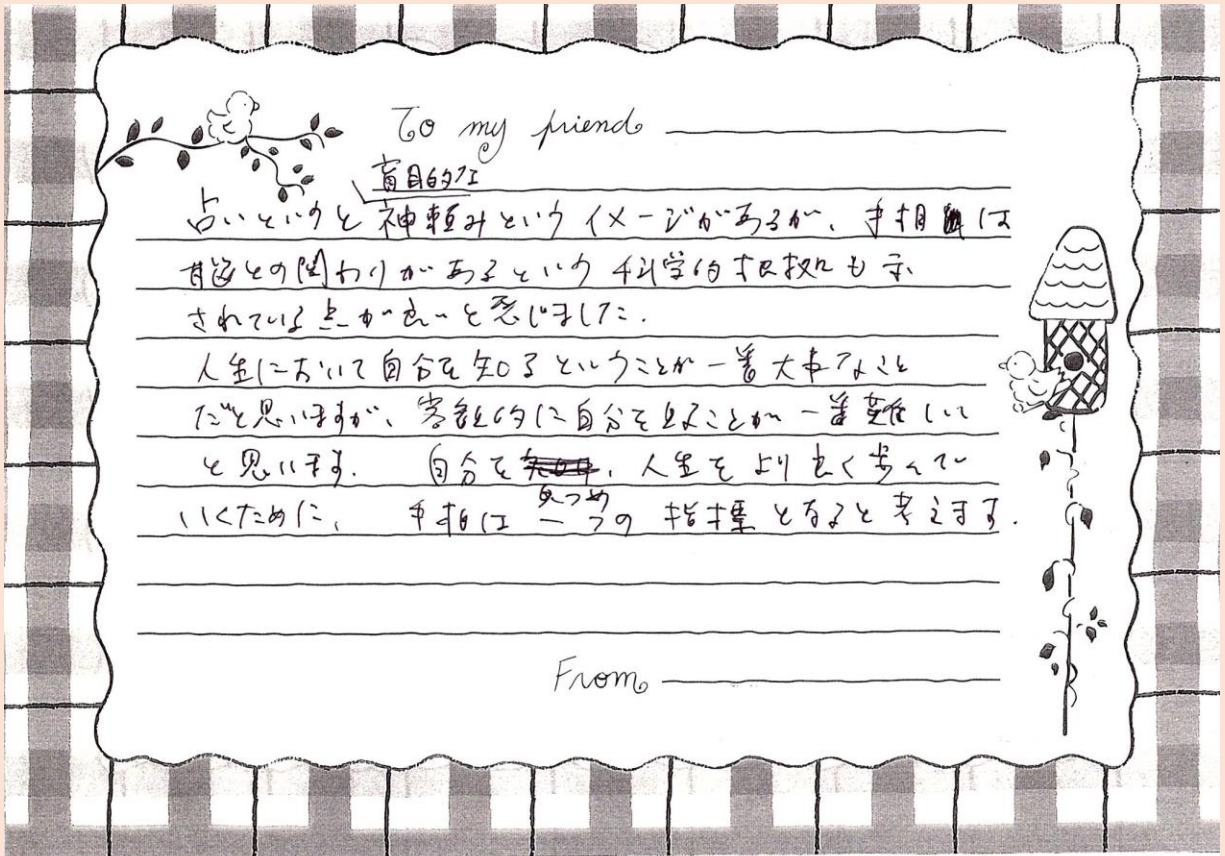 To my friend
盲目的な
占いというと神頼みというイメージがあるが、手相は
脳との関わりがあるという科学的根拠も示
されている点が良いと感じました.
人生において自分を知るということが一番大事なこと
だと思いますが、客観的に自分を見ることが一番難しい
と思います. 自分を、人生をより良く歩んで
見つめ
いくために、手相は一つの指標となると考えます.
From